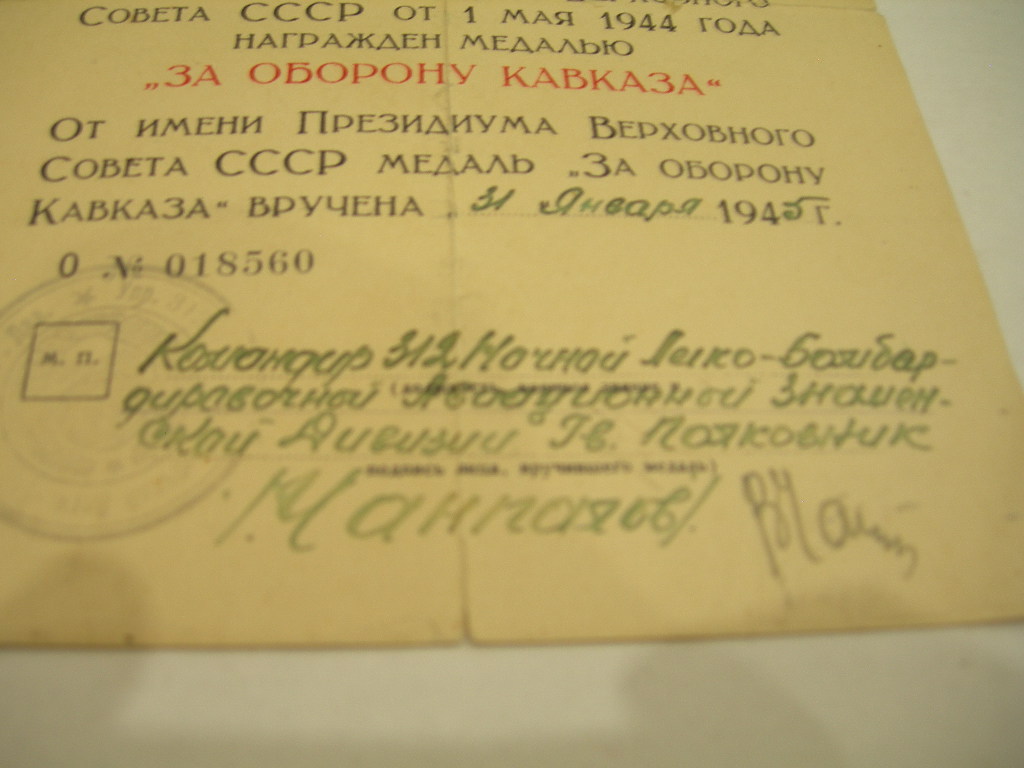 Совета СССР от 1 мая 1944 года
награжден медалью
„За оборону Кавказа“
От имени Президиума Верховного
Совета СССР медаль „За оборону
Кавказа“ вручена „31 Января 1945 г.
О № 018560
м. п.
Командир 312 Ночной Легко-Бомбар-
дировочной Авиационной Знамен-
ской Дивизии Гв. Полковник
подпись лица, вручившего медаль)
/Чанпалов/